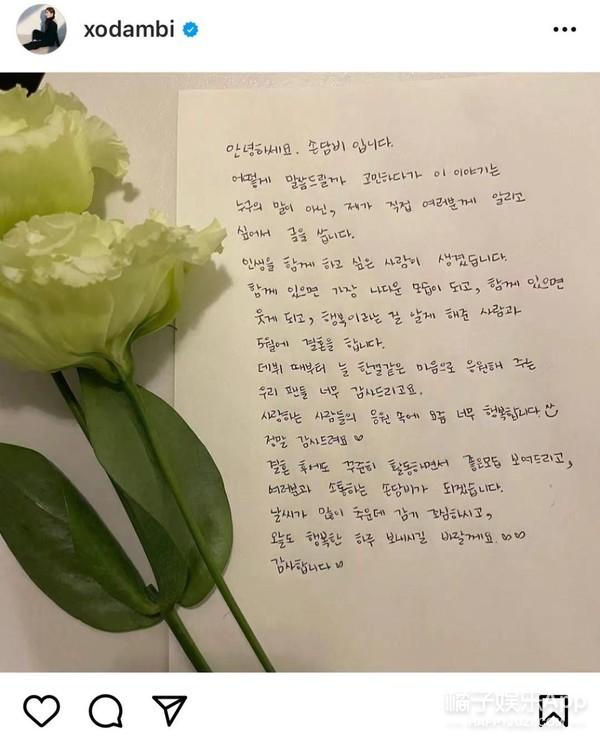 xodambi
안녕하세요. 손담비 입니다.
어떻게 말씀드릴까 고민하다가 이 이야기는
누구의 말이 아닌, 제가 직접 여러분께 알리고
싶어서 글을 씁니다.
인생을 함께 하고 싶은 사람이 생겼습니다.
함께 있으면 가장 나다운 모습이 되고, 함께 있으면
웃게 되고, 행복이라는 걸 알게 해준 사람과
5월에 결혼을 합니다.
데뷔 때부터 늘 한결같은 마음으로 응원해 주는
우리 팬들 너무 감사드리고요.
사랑하는 사람들의 응원 속에 요즘 너무 행복합니다. ^^
정말 감사드려요 ♡
결혼 후에도 꾸준히 활동하면서 좋은모습 보여드리고,
여러분과 소통하는 손담비가 되겠습니다.
날씨가 많이 추운데 감기 조심하시고,
오늘도 행복한 하루 보내시길 바랄게요. ♡♡
감사합니다 ♡
橘子娱乐App
HAPPYJUZI.COM